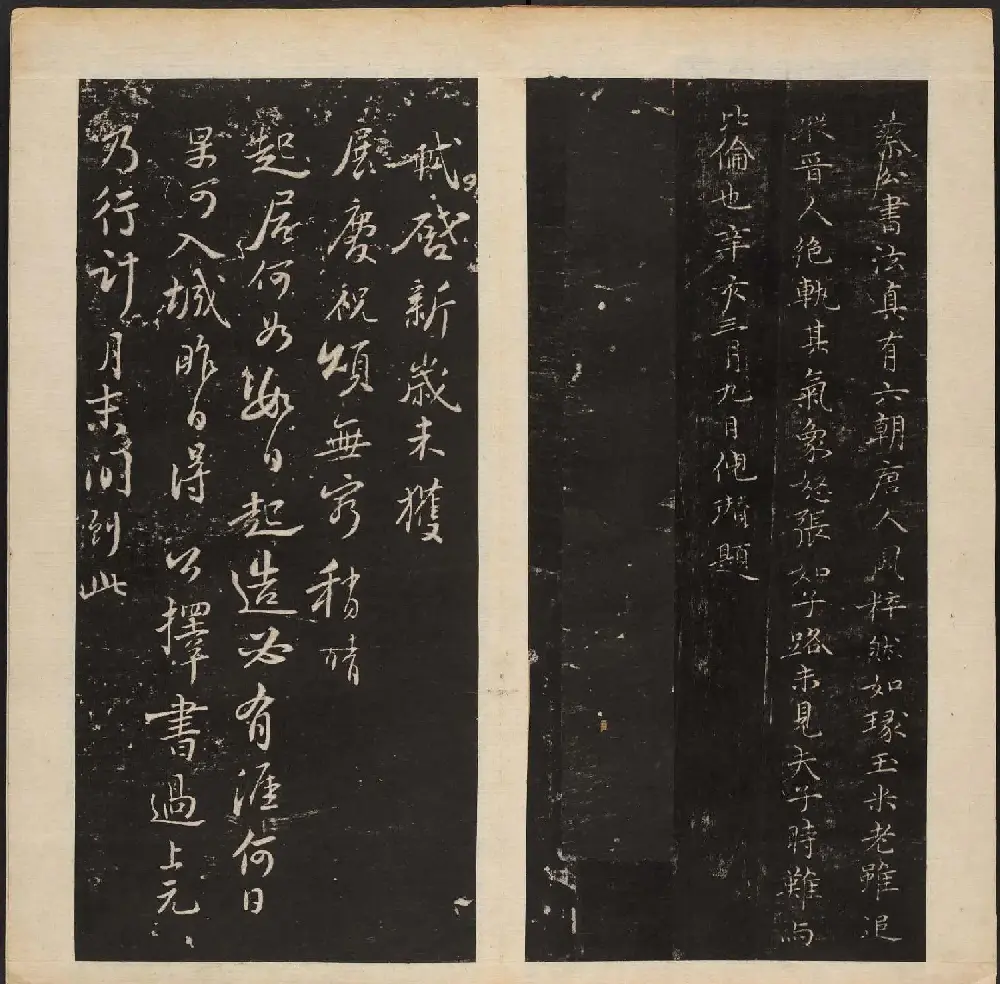 蔡公書法真有六朝唐人風粹然如琢玉米老雖追
蹤晉人絶軌其氣象怒張如子路未見夫子時難与
比倫也辛亥三月九日倪瓚題
軾啓新歲未獲
展慶祝頌無窮稍晴
起居何如數日起造必有涯何日
果可入城昨日得公擇書過上元
乃行計月末間到此